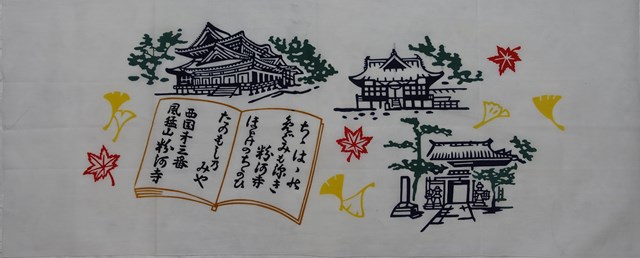 ちゝはゝの
めぐみも深き
粉河寺
ほとけのちかひ
たのもし乃
みや
西国第三番
風猛山粉河寺